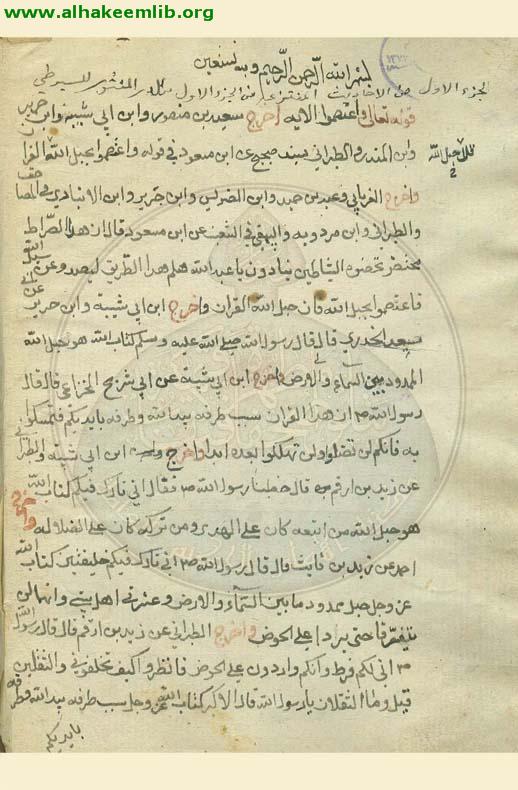 www.alhakeemlib.org
بسم الله الرحمن الرحيم وبه نستعين
الجزء الاول من الاحاديث المنتقى من الجزء الاول من الدر المنثور للسيوطي
قوله تعالى واعتصموا الايه اخرج سعيد بن منصور وابن ابي شيبة وابن جرير
وابن المنذر والطبراني بسند صحيح عن ابن مسعود في قوله واعتصموا بحبل الله القرآن
حبل الله
واخرج الفريابي وعبد بن حميد وابن الضريس وابن جرير وابن الانباري في المصاحف
والطبراني وابن مردويه والبيهقي في الشعب عن ابن مسعود قال ان هذا الصراط
محتضر تحضره الشياطين ينادون يا عبد الله هلم هذا الطريق ليصدوا عن سبيل الله
فاعتصموا بحبل الله فان حبل الله القران واخرج ابن ابي شيبة وابن جرير عن ابي
سعيد الخدري قال قال رسول الله صلى الله عليه وسلم كتاب الله هو حبل الله
الممدود بين السماء والارض واخرج ابن ابي شيبة عن ابي شريح الخزاعي قال قال
رسول الله ص ان هذا القران سبب طرفه بيد الله وطرفه بايديكم فتمسكوا
به فانكم لن تضلوا ولن تهلكوا بعده ابدا واخرج ابن ابي شيبة والطبراني
عن زيد بن ارقم قال خطبنا رسول الله ص فقال اني تارك فيكم كتاب الله
هو حبل الله من اتبعه كان على الهدى ومن تركه كان على الضلاله واخرج
احمد عن زيد بن ثابت قال قال رسول الله ص اني تارك فيكم خليفتين كتاب الله
عز وجل حبل ممدود ما بين السماء والارض وعترتي اهل بيتي وانهما لن
يتفرقا حتى يردا علي الحوض واخرج الطبراني عن زيد بن ارقم قال قال رسول الله
ص اني لكم فرط وانكم واردون علي الحوض فانظروا كيف تخلفوني في الثقلين
قيل وما الثقلان يا رسول الله قال الاكبر كتاب الله عز وجل سبب طرفه بيد الله وطرفه
بايديكم